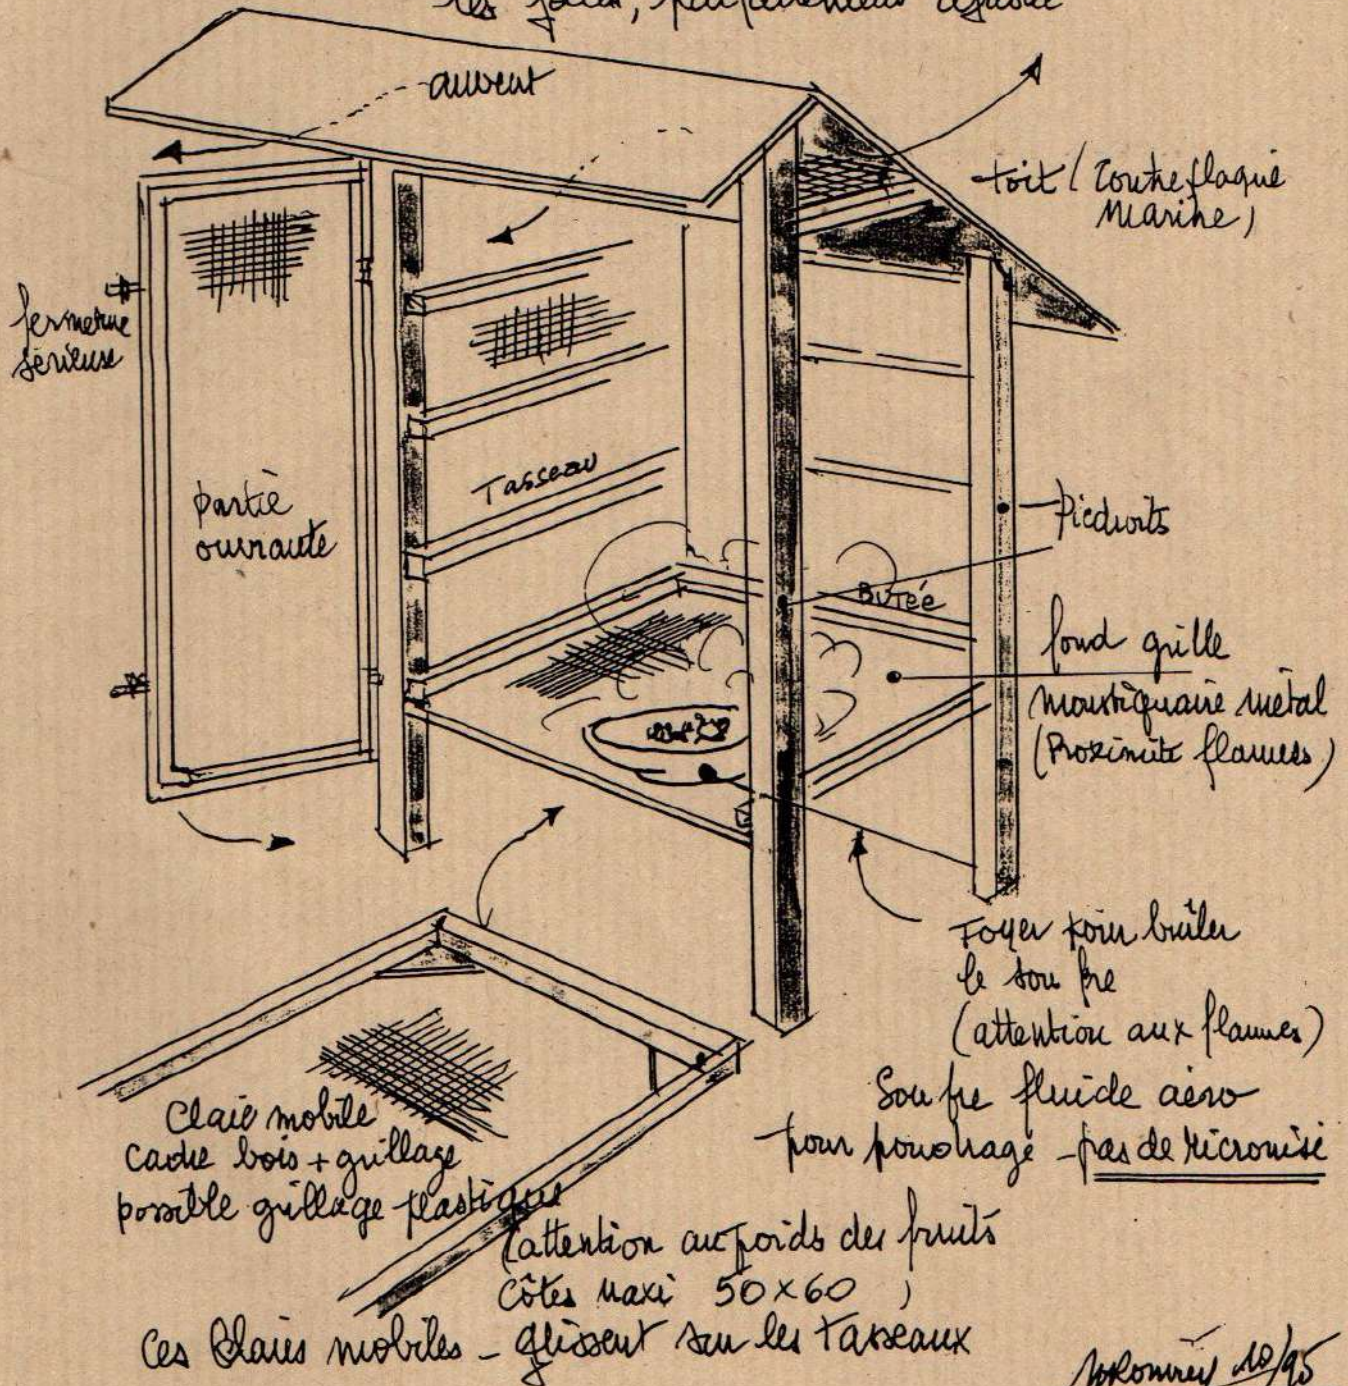 les
auvent
toit (contreplaqué
marine)
fermeture
sérieuse
partie
ouvrante
Tasseau
Piédroits
BUTÉE
fond grille
moustiquaire métal
(Proximité flammes)
Foyer pour brûler
le soufre
(attention aux flammes)
Soufre fluide aéro
pour poudrage - pas de micronisé
Claie mobile
cadre bois + grillage
possible grillage plastique
(attention au poids des fruits
côtes maxi 50x60 )
Ces Claies mobiles - glissent sur les tasseaux
10/95